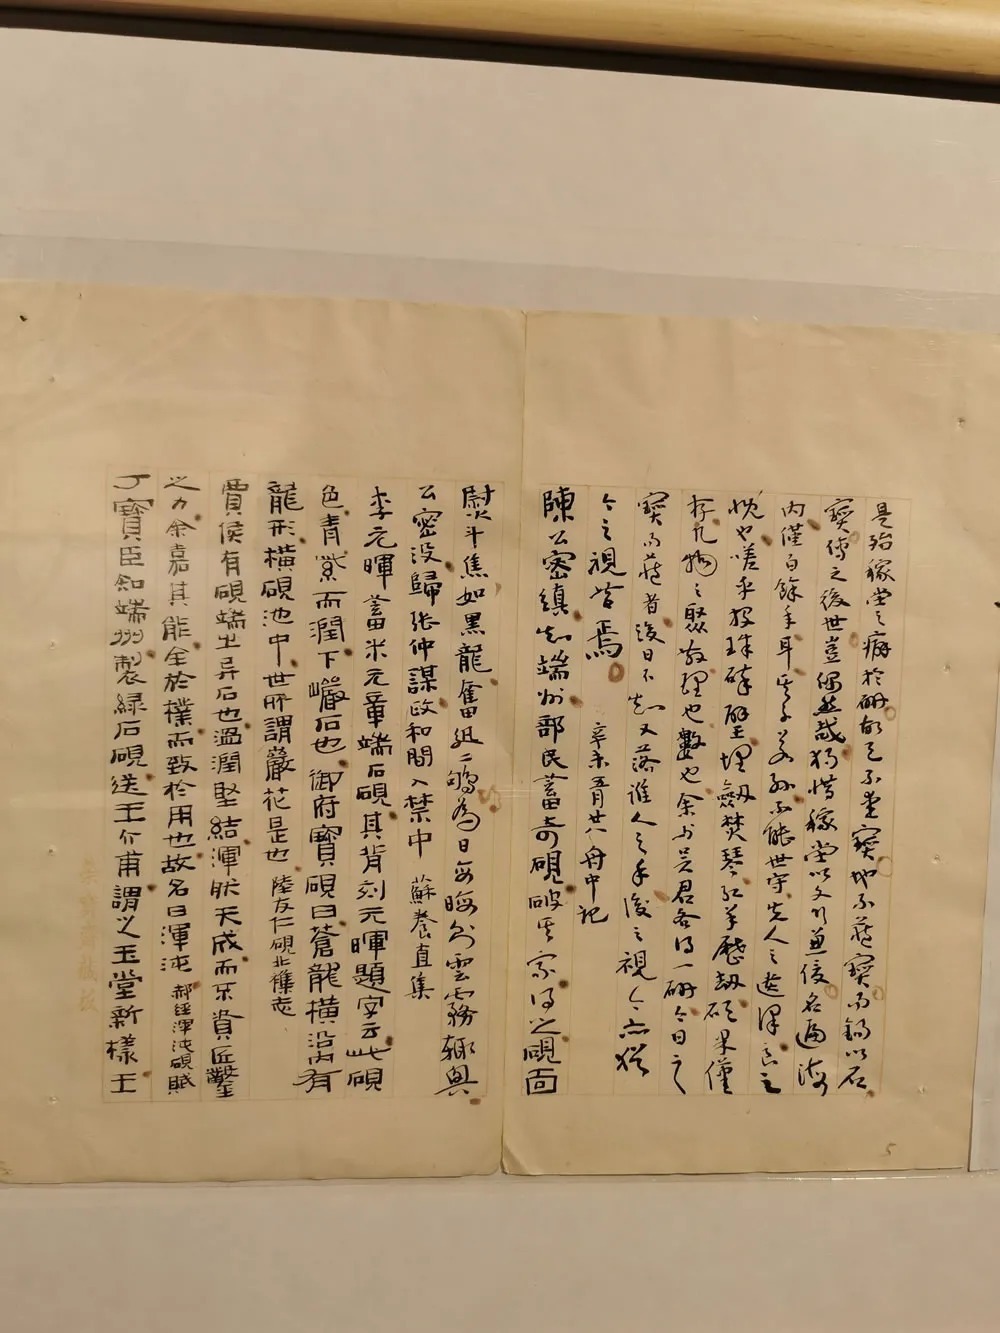 是殆稼堂之癖於研故已不愛寶地不藏寶而銘以石
寶傳之後世豈偶然哉獨惜稼堂以文行兼優名遍海
内僅百餘年耳其子若孫不能世守先人之遺澤良主
忱也嗟乎投珠碎璧埋劔焚琴紅羊歷劫砍果僅
存凡物之聚散理也數也余与吴君各得一研今日之
寶而藏者後日不知又落誰人之手後之視今亦猶
今之視昔焉 辛未五月廿八舟中記
陳公密縝知端州部民蓄奇硯破其家得之硯面
熨斗焦如黑龍奮迅二鴝為目每晦則雲霧輒興
公密没歸張仲謀政和間入禁中 蘇養直集
李元暉蓄米元章端石硯其背刻元暉題字云此硯
色青紫而潤下巖石也御府寶硯曰蒼龍橫沼内有
龍形橫硯池中世所謂巖花是也 陸友仁硯北雜志
賈侯有硯端土异石也溫潤堅結渾肰天成而不資匠鑿
之力余嘉其能全於樸而致於用也故名曰渾沌 郝經渾沌硯賦
丁寶臣知端州製緑石硯送王介甫謂之玉堂新樣王
5